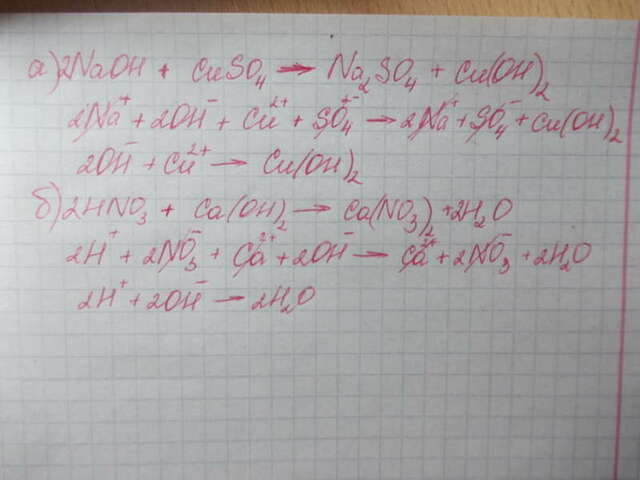 а) 2NaOH + CuSO₄ → Na₂SO₄ + Cu(OH)₂
2Na⁺ + 2OH⁻ + Cu²⁺ + SO₄²⁻ → 2Na⁺ + SO₄⁻ + Cu(OH)₂
2OH⁻ + Cu²⁺ → Cu(OH)₂
б) 2HNO₃ + Ca(OH)₂ → Ca(NO₃)₂ + 2H₂O
2H⁺ + 2NO₃⁻ + Ca²⁺ + 2OH⁻ → Ca²⁺ + 2NO₃⁻ + 2H₂O
2H⁺ + 2OH⁻ → 2H₂O